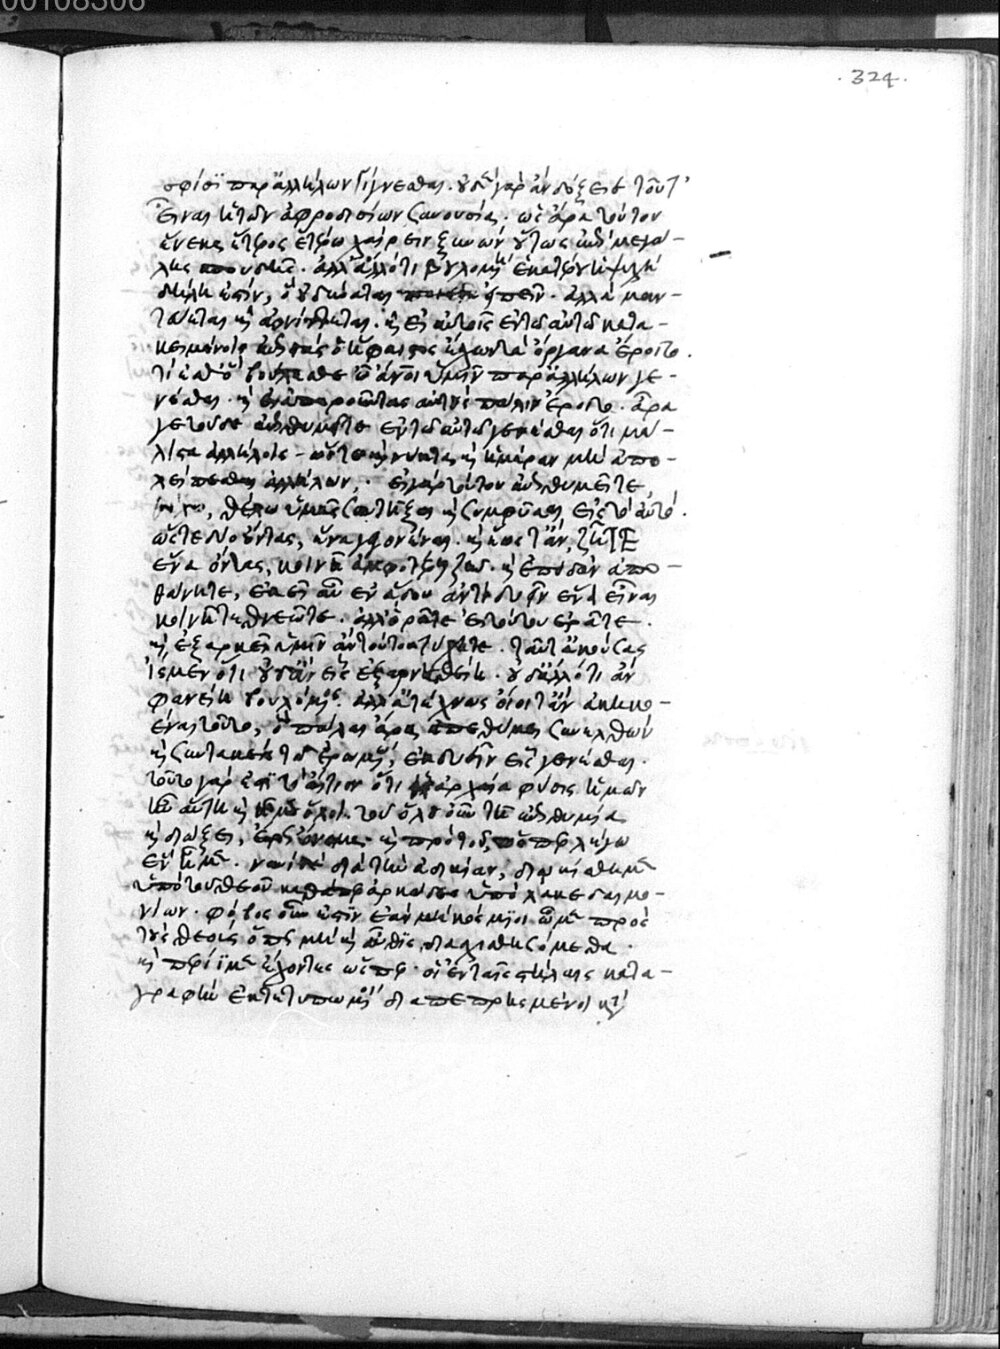 00108306
. 324 .
σφίσϊ παρ' ἀλλήλων γίγνεσθαι. οὐδὲ γὰρ ἂν δόξειε τοῦτ'
εἶναι ἡ τῶν ἀφροδισίων συνουσία. ὡς ἄρα τούτου
ἕνεκα ἕτερος ἑτέρω χαίρει ξυνὼν οὕτως ἐπὶ μεγά-
λης σπουδῆς. ἀλλ' ἄλλό τι βουλομένη ἑκατέρου ἡ ψυχὴ
δήλη ἐστίν, ὃ οὐ δύναται εἰπεῖν. ἀλλὰ μαν-
καὶ εἰ αὐτοῖς ἐν τῶ αὐτῶ κατα-
κειμένοις ἐπιστὰς ὁ ἥφαιστος ἔχων τὰ ὄργανα ἔροιτο.
τί ἐσθ' ὃ βούλεσθε ὦ ἄνοι ὑμῖν παρ' ἀλλήλων γε-
νέσθαι. καὶ εἰ ἀποροῦντας αὐτοὺς πάλιν ἔροιτο. ἆρα
γε τοῦδε ἐπιθυμεῖτε ἐν τῶ αὐτῶ γενέσθαι ὅτι μά-
λιστα ἀλλήλοις - ὥστε καὶ νύκτα καὶ ἡμέραν μὴ ἀπο-
λείπεσθαι ἀλλήλων. εἰ γὰρ τούτου ἐπιθυμεῖτε
θέλω ὑμᾶς συντῆξαι καὶ συμφῦσαι εἰς τὸ αὐτό.
ὥστε δύ' ὄντας, ἕνα γεγονέναι. καὶ ἕως τ' ἂν, ζῆτε
ἕνα ὄντας, κοινῆ ἀμφοτέρους ζῆν. καὶ ἐπειδὰν ἀπο-
θάνητε, ἐκεῖ αὖ ἐν ἅδου ἀντὶ δυεῖν ἕνα εἶναι
κοινῆ τεθνεῶτε. ἀλλ' ὁρᾶτε εἰ τούτου ἐρᾶτε.
καὶ ἐξαρκεῖ ὑμῖν ἂν τούτου τύχητε. ταῦτ' ἀκούσας
ἴσμεν ὅτι οὐδ' ἂν εἷς ἐξαρνηθείη. οὐδ' ἄλλό τι ἂν
φανείη βουλόμενος. ἀλλ' ἀτεχνῶς οἴοιτ' ἂν ἀκηκο-
έναι τοῦτο, ὃ πάλαι ἄρα ἐπεθύμει συνελθὼν
καὶ συντακεὶς τῶ ἐρωμένω, ἐκ δυεῖν εἷς γενέσθαι.
τοῦτο γάρ ἐστϊ τὸ αἴτιον ὅτι ἡ ἀρχαία φύσις ἡμῶν
ἦν αὕτη καὶ ἦμεν ὅλοι. τοῦ ὅλου οὖν τῆ ἐπιθυμία
καὶ διώξει, ἔρως ὄνομα. καὶ πρὸ τοῦ, ὥσπερ λέγω
ἓν ἦμεν. νυνὶ δὲ διὰ τὴν ἀδικίαν, διωκίσθημεν
ὑπὸ τοῦ θεοῦ καθάπερ ἀρκάδες ὑπὸ λακεδαιμο-
νίων. φόβος οὖν ἐστϊν ἐὰν μὴ κόσμϊοι ὦμεν πρὸς
τοὺς θεούς, ὅπως μὴ καὶ αὖθϊς διασχισθησόμεθα.
καὶ περίϊμεν ἔχοντες ὥσπερ οἱ ἐν ταῖς στήλαις κατα-
γραφὴν ἐκτετυπωμένοι διαπεπρισμένοι κατὰ